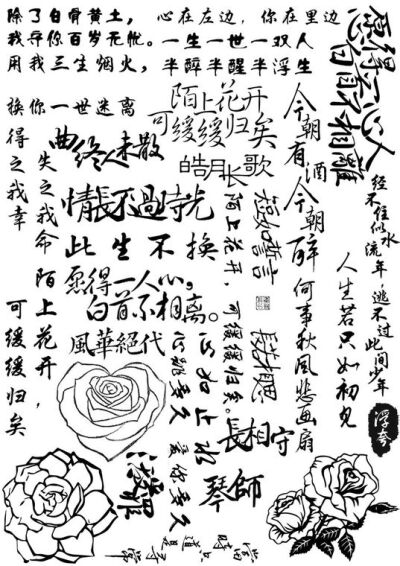 除了白骨黄土，
我弃你百岁无忧。
用我三生烟火，
换你一世迷离
心在左边，你在里边
一生一世一双人
半醉半醒半浮生
愿得一心人
白首不相離
陌上花开
可缓缓归矣
今朝有酒今朝醉
得之我幸
失之我命
曲终人未散
皓月长歌
情長不過時光
此生不换
愿得一人心。
白首不相离。
風華絕代
陌上花开，可缓缓归矣。
短如誓言
長相思
何事秋风悲画扇
人生若只如初见
经不住似水流年
逃不过此间少年
浮夸
陌上花开，
可缓缓归矣
心如止水
爱你多久
長相守
琴師